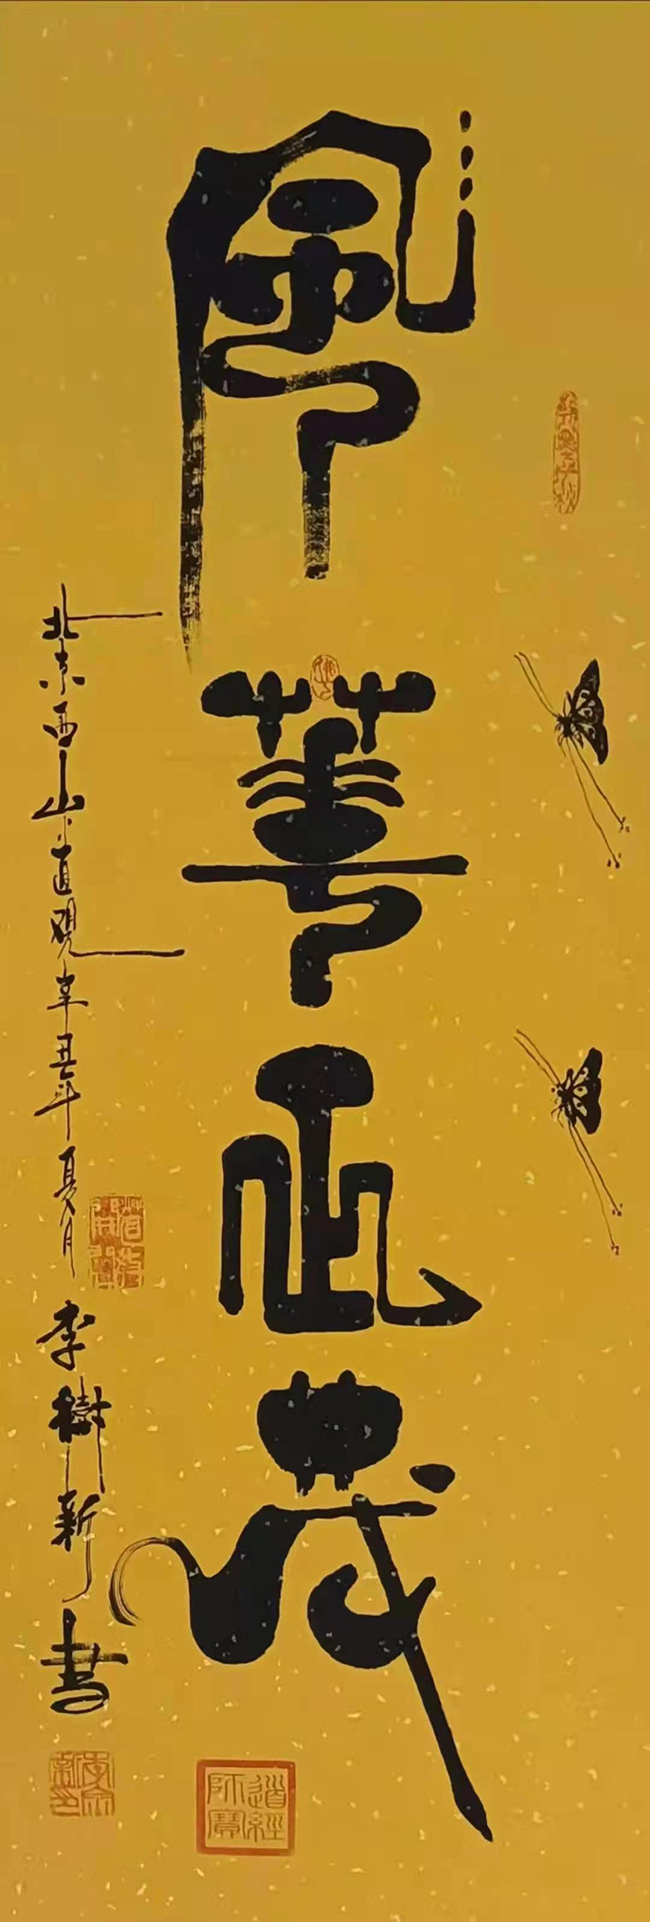 風華正茂
北京西山道观辛丑年夏月
李樹新書
道經師寶